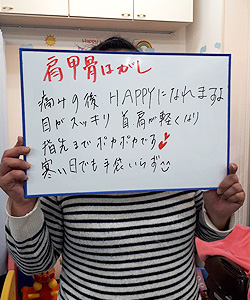 肩甲骨はがし
痛みの後 HAPPYになれますよ
目がスッキリ 首、肩が軽くなり
指先までポカポカでる
寒い日でも手袋いらず